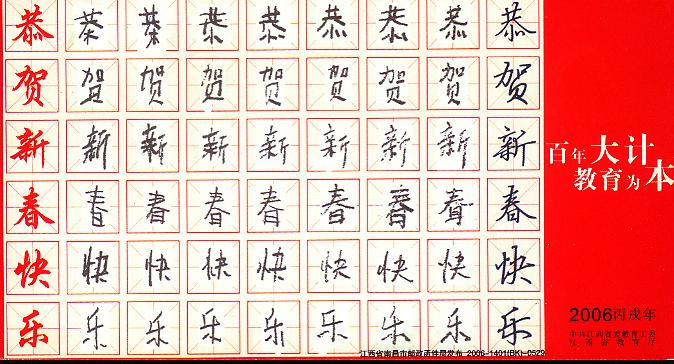 恭恭恭恭恭恭恭恭恭
贺贺贺贺贺贺贺贺贺
新新新新新新新新新
春春春春春春春春春
快快快快快快快快快
乐乐乐乐乐乐乐乐乐
百年大计
教育为本
2006丙戌年
中共江西省委教育工委
江西省教育厅
江西省南昌市邮政函件局发布 2006-1401(BK)-0529